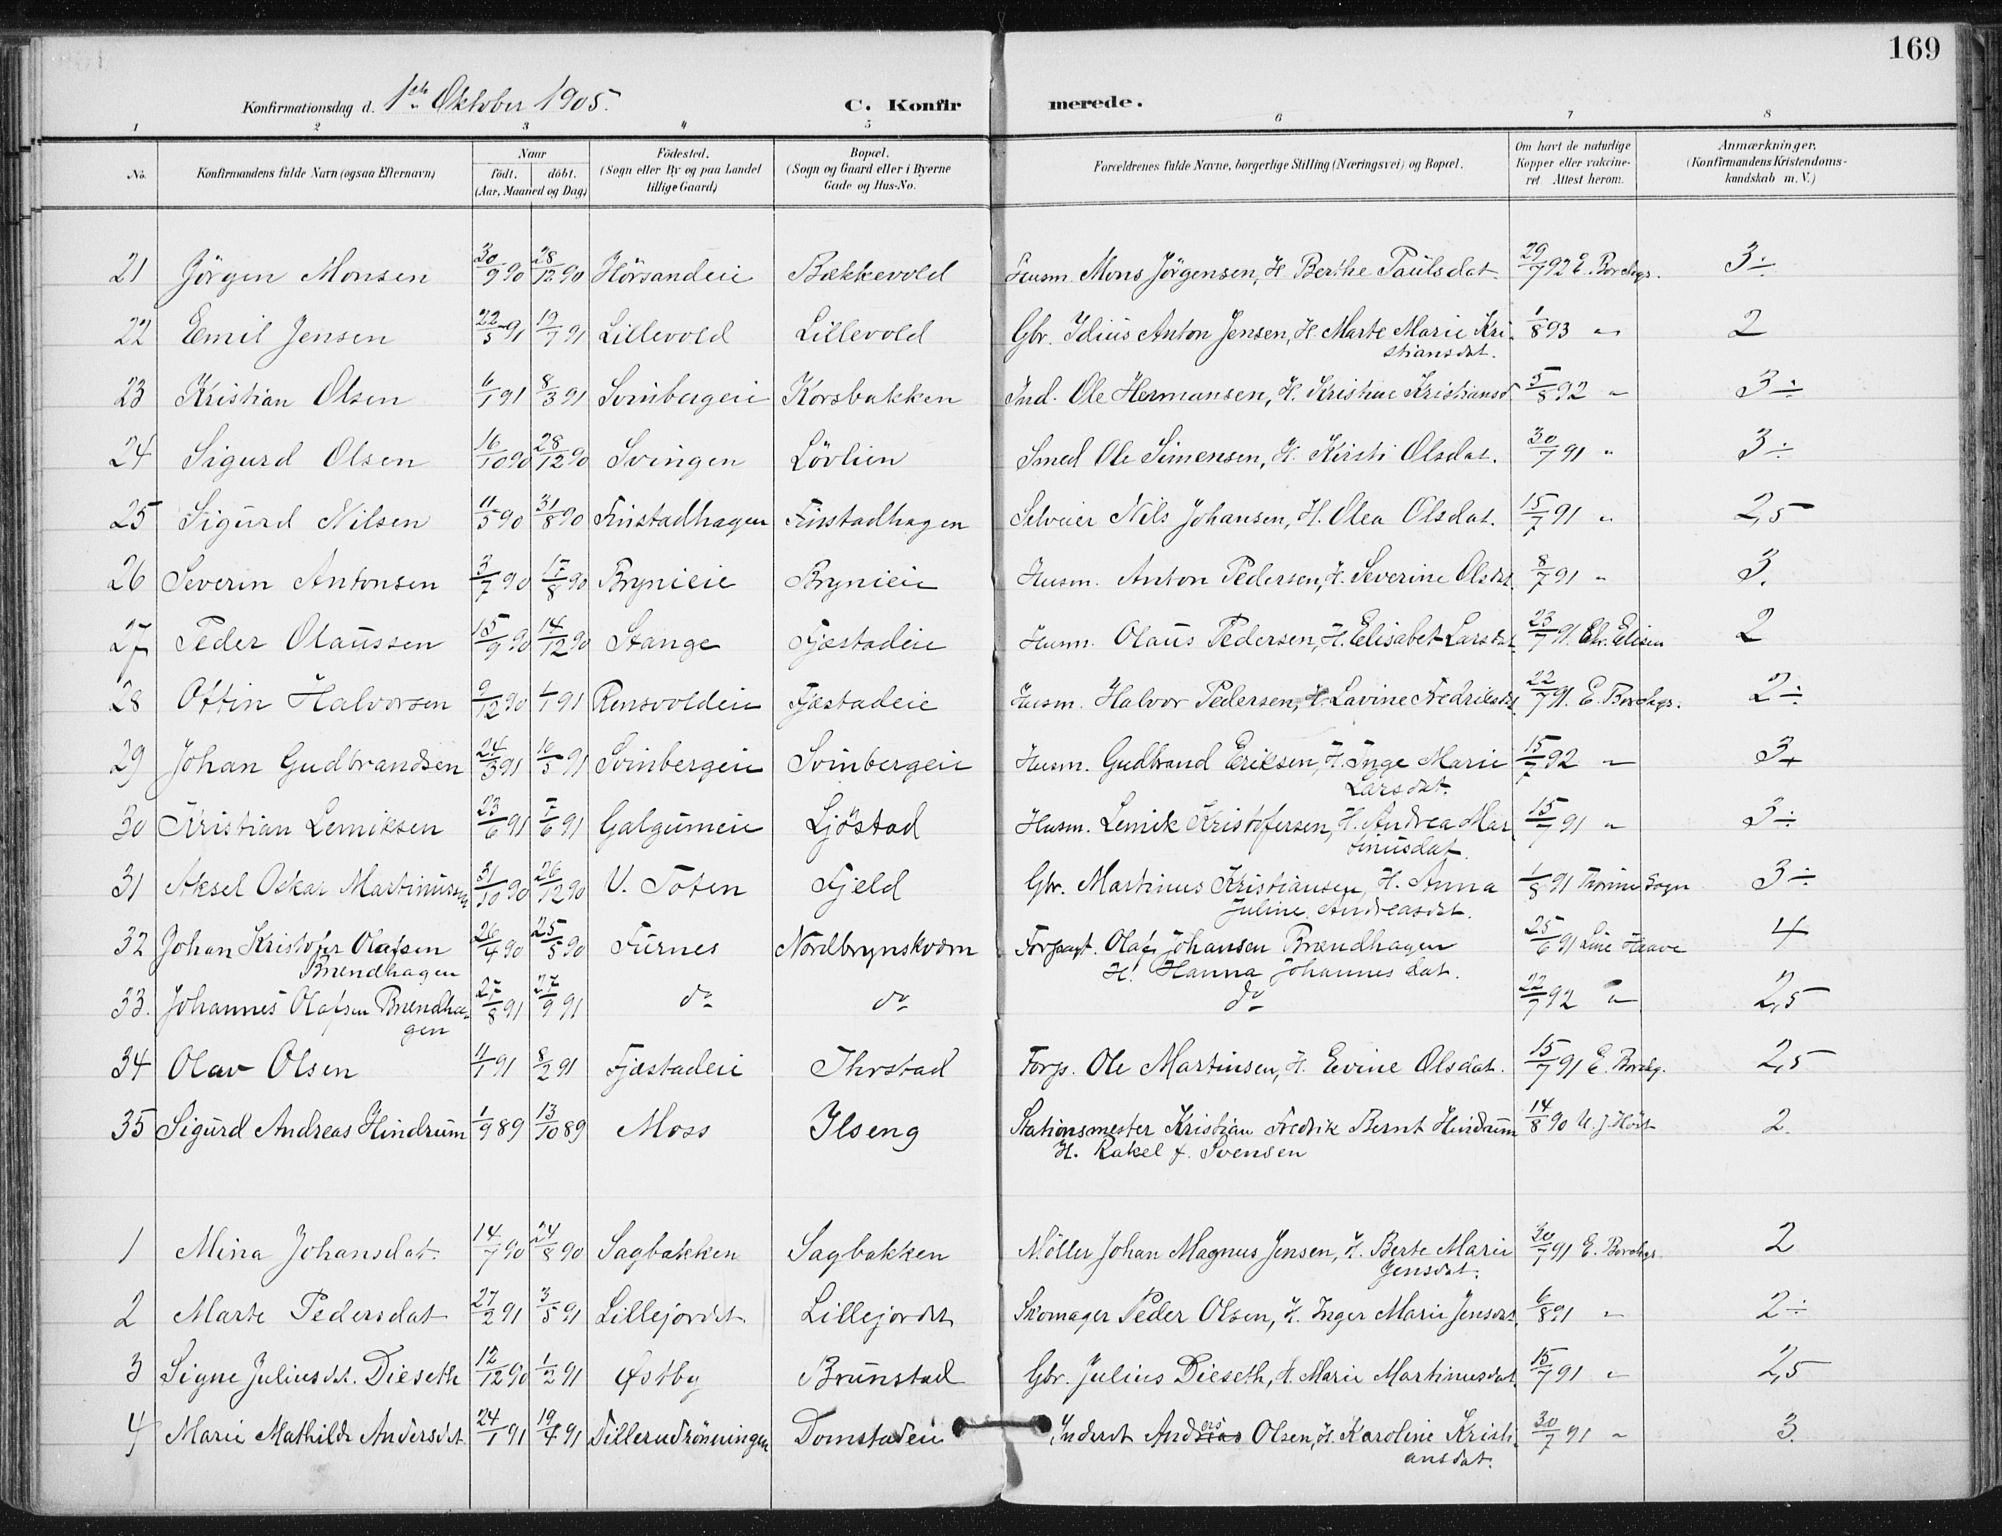 169
Konfirmationsdag d. 1ste Oktober 1905. C. Konfirmerede.
1 2 3 4 5 6 7 8
No. Konfirmandens fulde Navn (ogsaa Efternavn) Naar født. døbt. (Aar, Maaned og Dag) Fødested. (Sogn eller By og paa Landet tillige Gaard) Bopæl. (Sogn og Gaard eller i Byerne Gade og Hus-No. Forældrenes fulde Navne, borgerlige Stilling (Næringsvei) og Bopæl. Om havt de naturlige Kopper eller vakcineret. Attest herom. Anmærkninger. (Konfirmandens Kristendomskundskab m. V.)
21 Jörgen Monsen 30/9 90 28/12 90 Hörsandeie Bækkevold Husm. Mons Jörgensen, H. Berthe Paulsdat. 29/7 92 E. Borchgr. 3÷
22 Emil Jensen 22/5 91 19/7 91 Lillevold Lillevold Gbr. Idius Anton Jensen, H. Marte Marie Kri-
stiansdat. 1/8 93 " 2
23 Kristian Olsen 6/1 91 8/3 91 Svinbergeie Korsbakken Ind. Ole Hermansen, H. Kristine Kristiansd 5/8 92 " 3÷
24 Sigurd Olsen 16/10 90 28/12 90 Svingen Lövlien Smed Ole Simensen, H. Kirsti Olsdat. 30/7 91 " 3÷
25 Sigurd Nilsen 11/5 90 31/8 90 Finstadhagen Finstadhagen Selveier Nils Johansen, H. Olea Olsdat. 15/7 91 " 2,5
26 Severin Antonsen 3/7 90 17/8 90 Brynieie Brynieie Husm. Anton Pedersen, H. Severine Olsdat. 8/7 91 " 3.
27 Peder Olaussen 15/9 90 14/12 90 Stange Fjæstadeie Husm. Olaus Pedersen, H. Elisabet Larsdat. 23/7 91. Chr. Elisen 2
28 Ottin Halvorsen 9/12 90 1/1 91 Rensvoldeie Fjæstadeie Husm. Halvor Pedersen, H. Lavine Fredriksdat 22/7 91. E. Borchgr. 2÷
29 Johan Gudbrandsen 24/3 91 10/5 91 Svinbergeie Svinbergeie Husm. Gudbrand Eriksen, H. Inge Marie
Larsdat. 15/7 92 " 3+
30 Kristian Lemiksen 23/6 91 7/6 91 Galgumeie Ljöstad Husm. Lemik Kristofersen, H. Andrea Mar
tinusdat. 15/7 91 " 3÷
31 Aksel Oskar Martinussen 31/10 90 26/12 90 V. Toten Fjeld Gbr. Martinus Kristiansen, H. Anna
Juline Andreasdat. 1/8 91 Sogn 3÷
32 Johan Kristofer Olafsen
Brændhagen 26/4 90 25/5 90 Furnes Nordbrynskværn Forpagt. Olaf Johansen Brændhagen
H. Hanna Johannesdat. 25/6 91 Line Haave 4
33. Johannes Olafsen Brændha-
gen 27/8 91 27/9 91 do do do 22/7 92 " 2,5
34 Olav Olsen 11/1 91 8/2 91 Fjæstadeie Ihrstad Forp. Ole Martinsen, H. Evine Olsdat. 15/7 91 E. Borchg. 2,5
35 Sigurd Andreas Hindrum 1/9 89 13/10 89 Moss Ilseng Stationsmester Kristian Fredrik Bernt Hindrum
H. Rakel f. Svensen 14/8 90 2.
1 Mina Johansdat. 14/7 90 24/8 90 Sagbakken Sagbakken Möller Johan Magnus Jensen, H. Berte Marie
Jensdat. 30/7 91 E. Borchgr. 2
2 Marte Pedersdat 27/2 91 3/5 91 Lillejordet Lillejordet Skomager Peder Olsen, H. Inger Marie Jensdat. 6/8 91 " 2÷
3 Signe Juliusdt. Dieseth 12/12 90 1/2 91 Østby Brunstad Gbr. Julius Dieseth, H. Marie Martinusdat. 15/7 91 " 2,5
4 Marie Mathilde Andersdat. 24/1 91 19/4 91 Dillerudrönningen Domstadeie Inderst Anders Olsen, H. Karoline Kristi-
ansdat. 30/7 91 " 3.